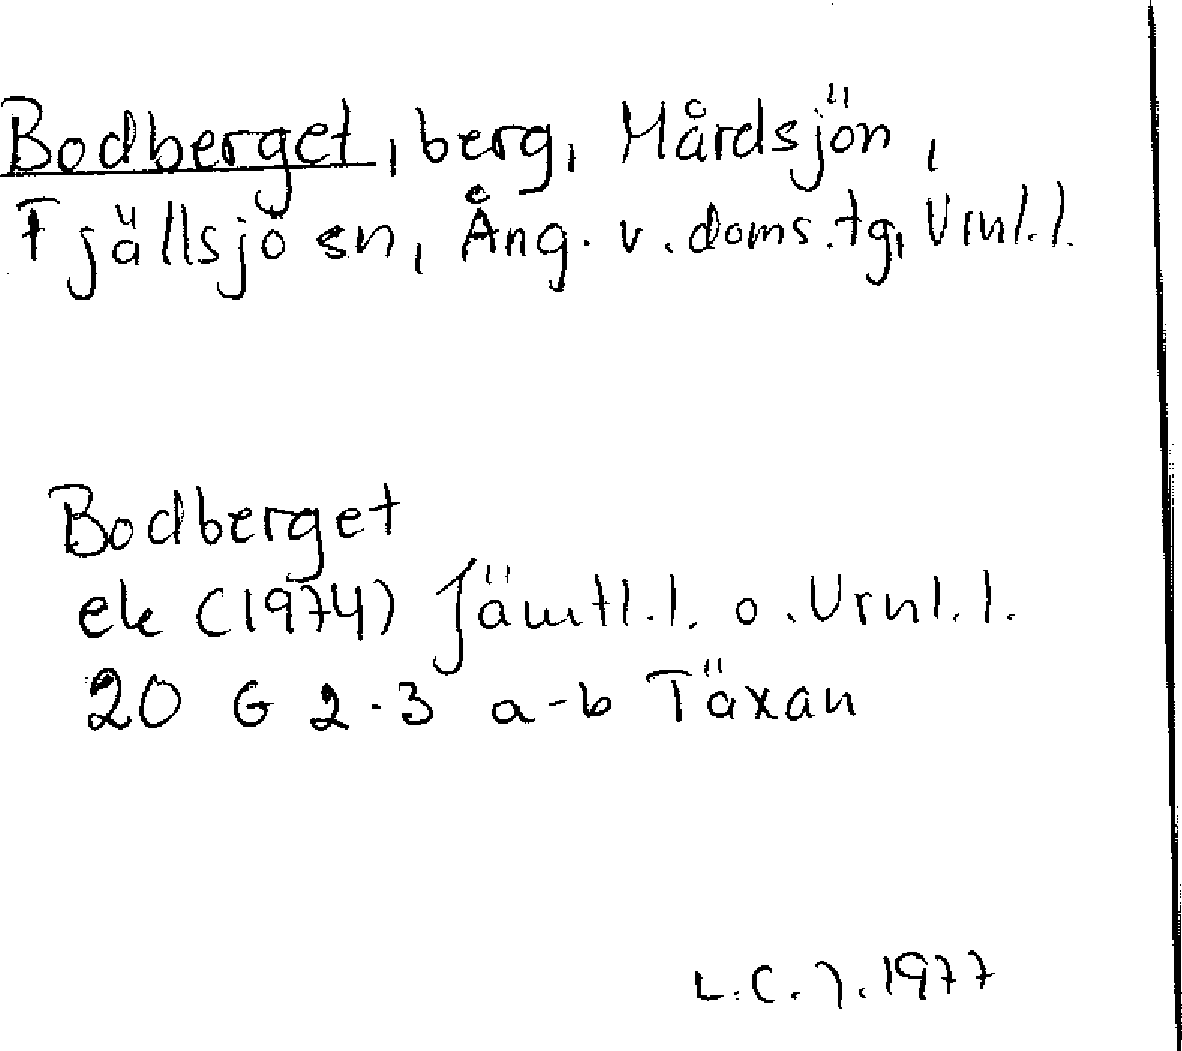 Bodberget, berg, Mårdsjön,
Fjällsjö sn, Ång. v. doms.tg, Vrnl.l.
Bodberget
ek (1974) Jämtl.l. o. Vrnl.l.
20 G 2-3 a-b Täxan
L.C.J. 1977